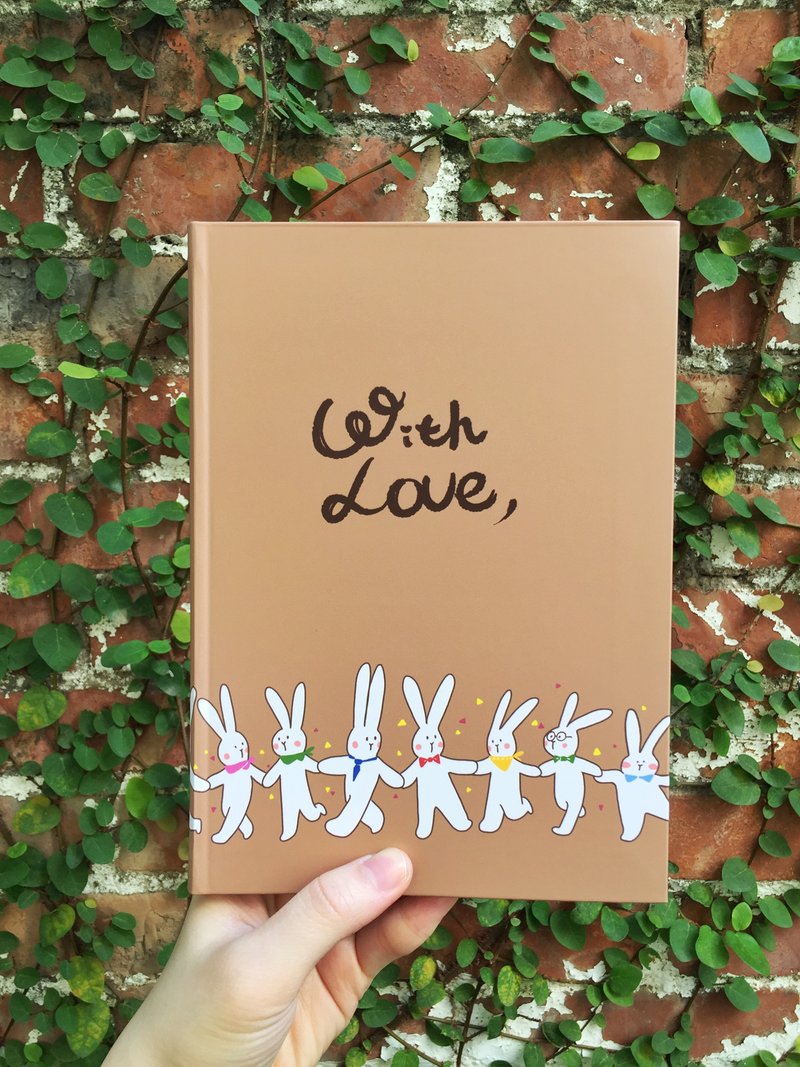 With
Love,